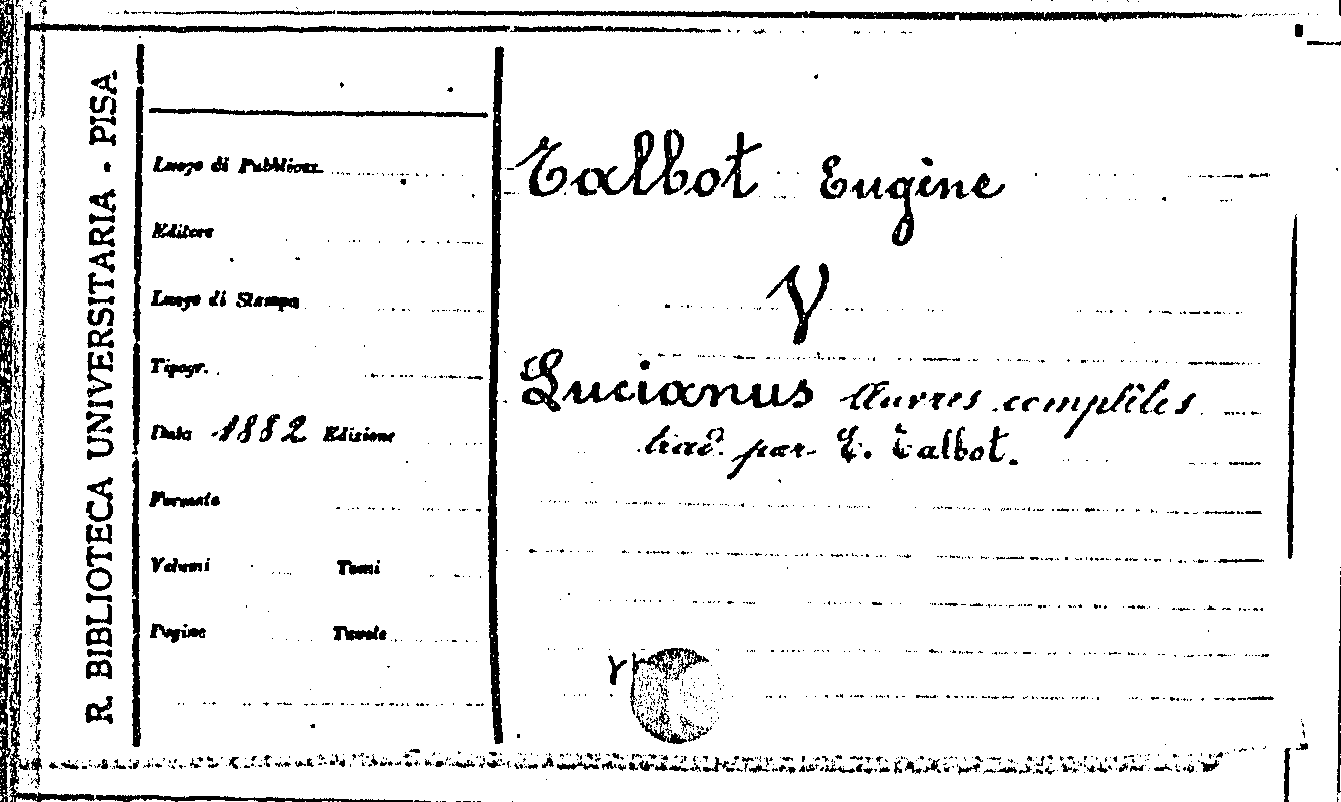 R. BIBLIOTECA UNIVERSITARIA - PISA
Luogo di Pubblicaz.
Editore
Luogo di Stampa
Tipogr.
Data 1882 Edizione
Formato
Volumi Tomi
Pagine Tavole
Talbot Eugène
V
Lucianus Œuvres complètes
trad. par E. Talbot.